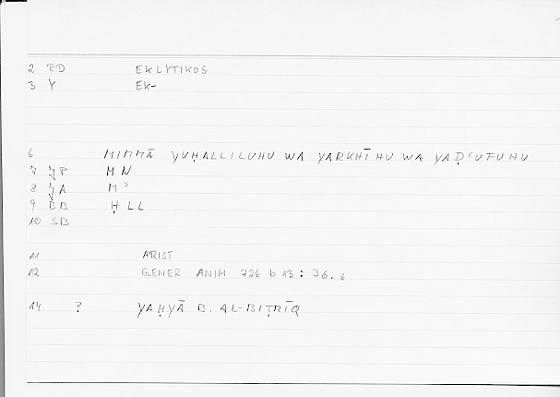 2 RD EKLYTIKOS
3 Y EK-
6 MIMMĀ YUḤALLILUHU WA YARKHĪHU WA YAḌʿUFUHU
7 YP MN
8 YA Mʾ
9 BB ḤLL
10 SB
11 ARIST
12 GENER ANIM 726 b 13 : 36.6
14 ? YAḤYĀ B. AL-BIṬRĪQ